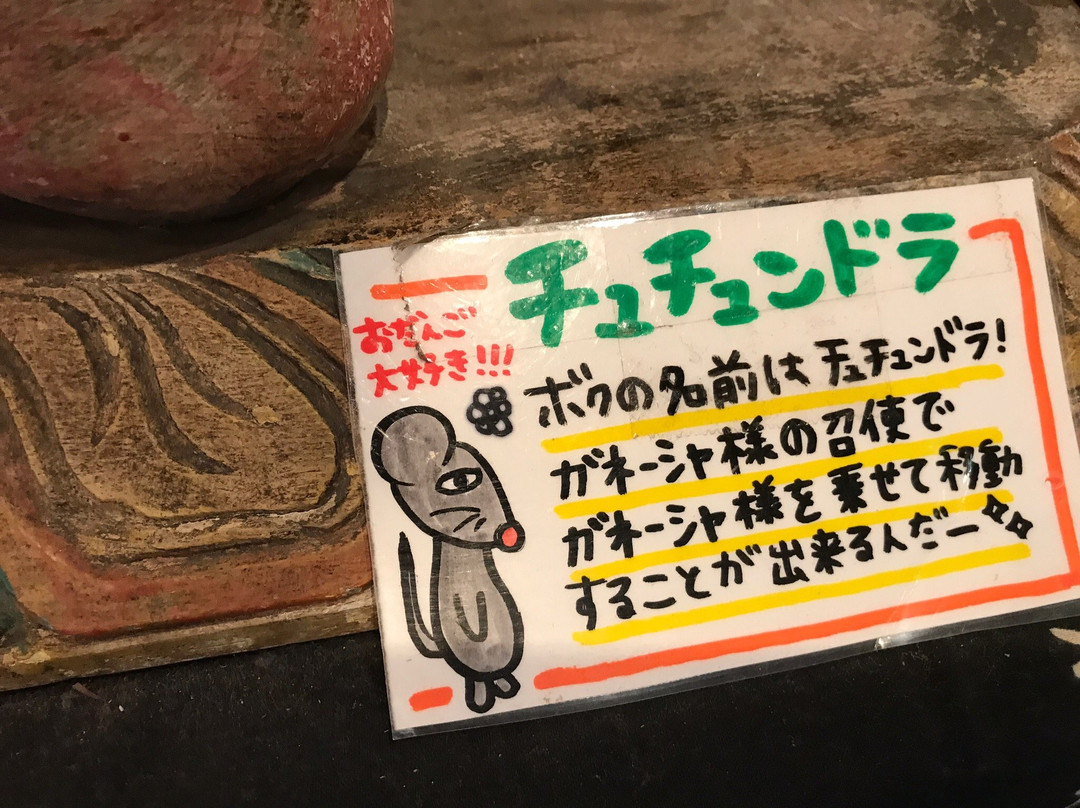 チュチュンドラ
おだんご
大好き!!!
ボクの名前はチュチュンドラ!
ガネーシャ様の召使で
ガネーシャ様を乗せて移動
することが出来るんだー